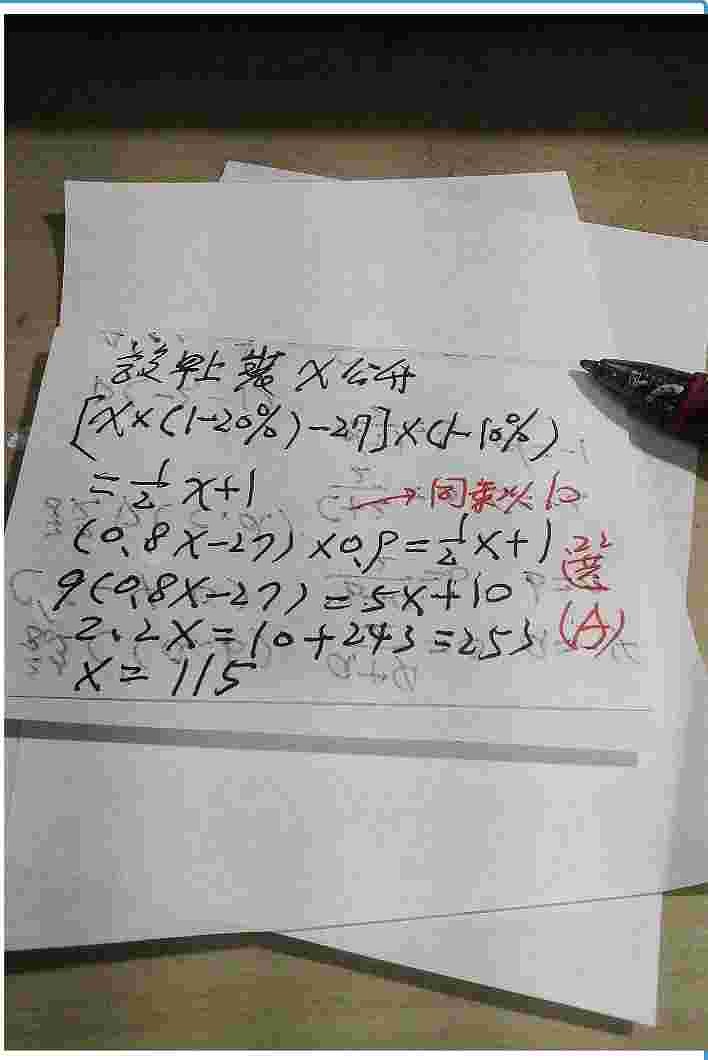 設 x 公分
[x×(1-20%)-27]×(1-10%)
=1/2 x+1
→同乘以10
(0.8x-27)×0.9=1/2 x+1
9(0.8x-27)=5x+10
2.2x=10+243=253
x=115
選
(A)